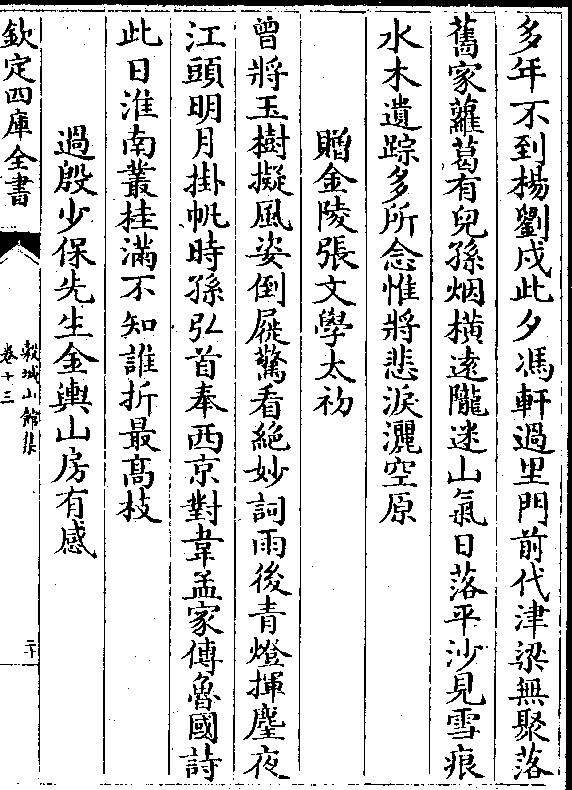 多年不到楊劉戍此夕馮軒過里門前代津梁無聚落
舊家蘿葛有兒孫烟橫遠隴迷山氣日落平沙見雪痕
水木遺踪多所念惟將悲淚灑空原
贈金陵張文學太初
曾將玉樹擬風姿倒屣驚看絶妙詞雨後青燈揮麈夜
江頭明月掛帆時孫弘首奉西京對韋孟家傳魯國詩
此日淮南叢桂滿不知誰折最高枝
過殷少保先生金輿山房有感
欽定四庫全書
榖城山館集
卷十三
二十